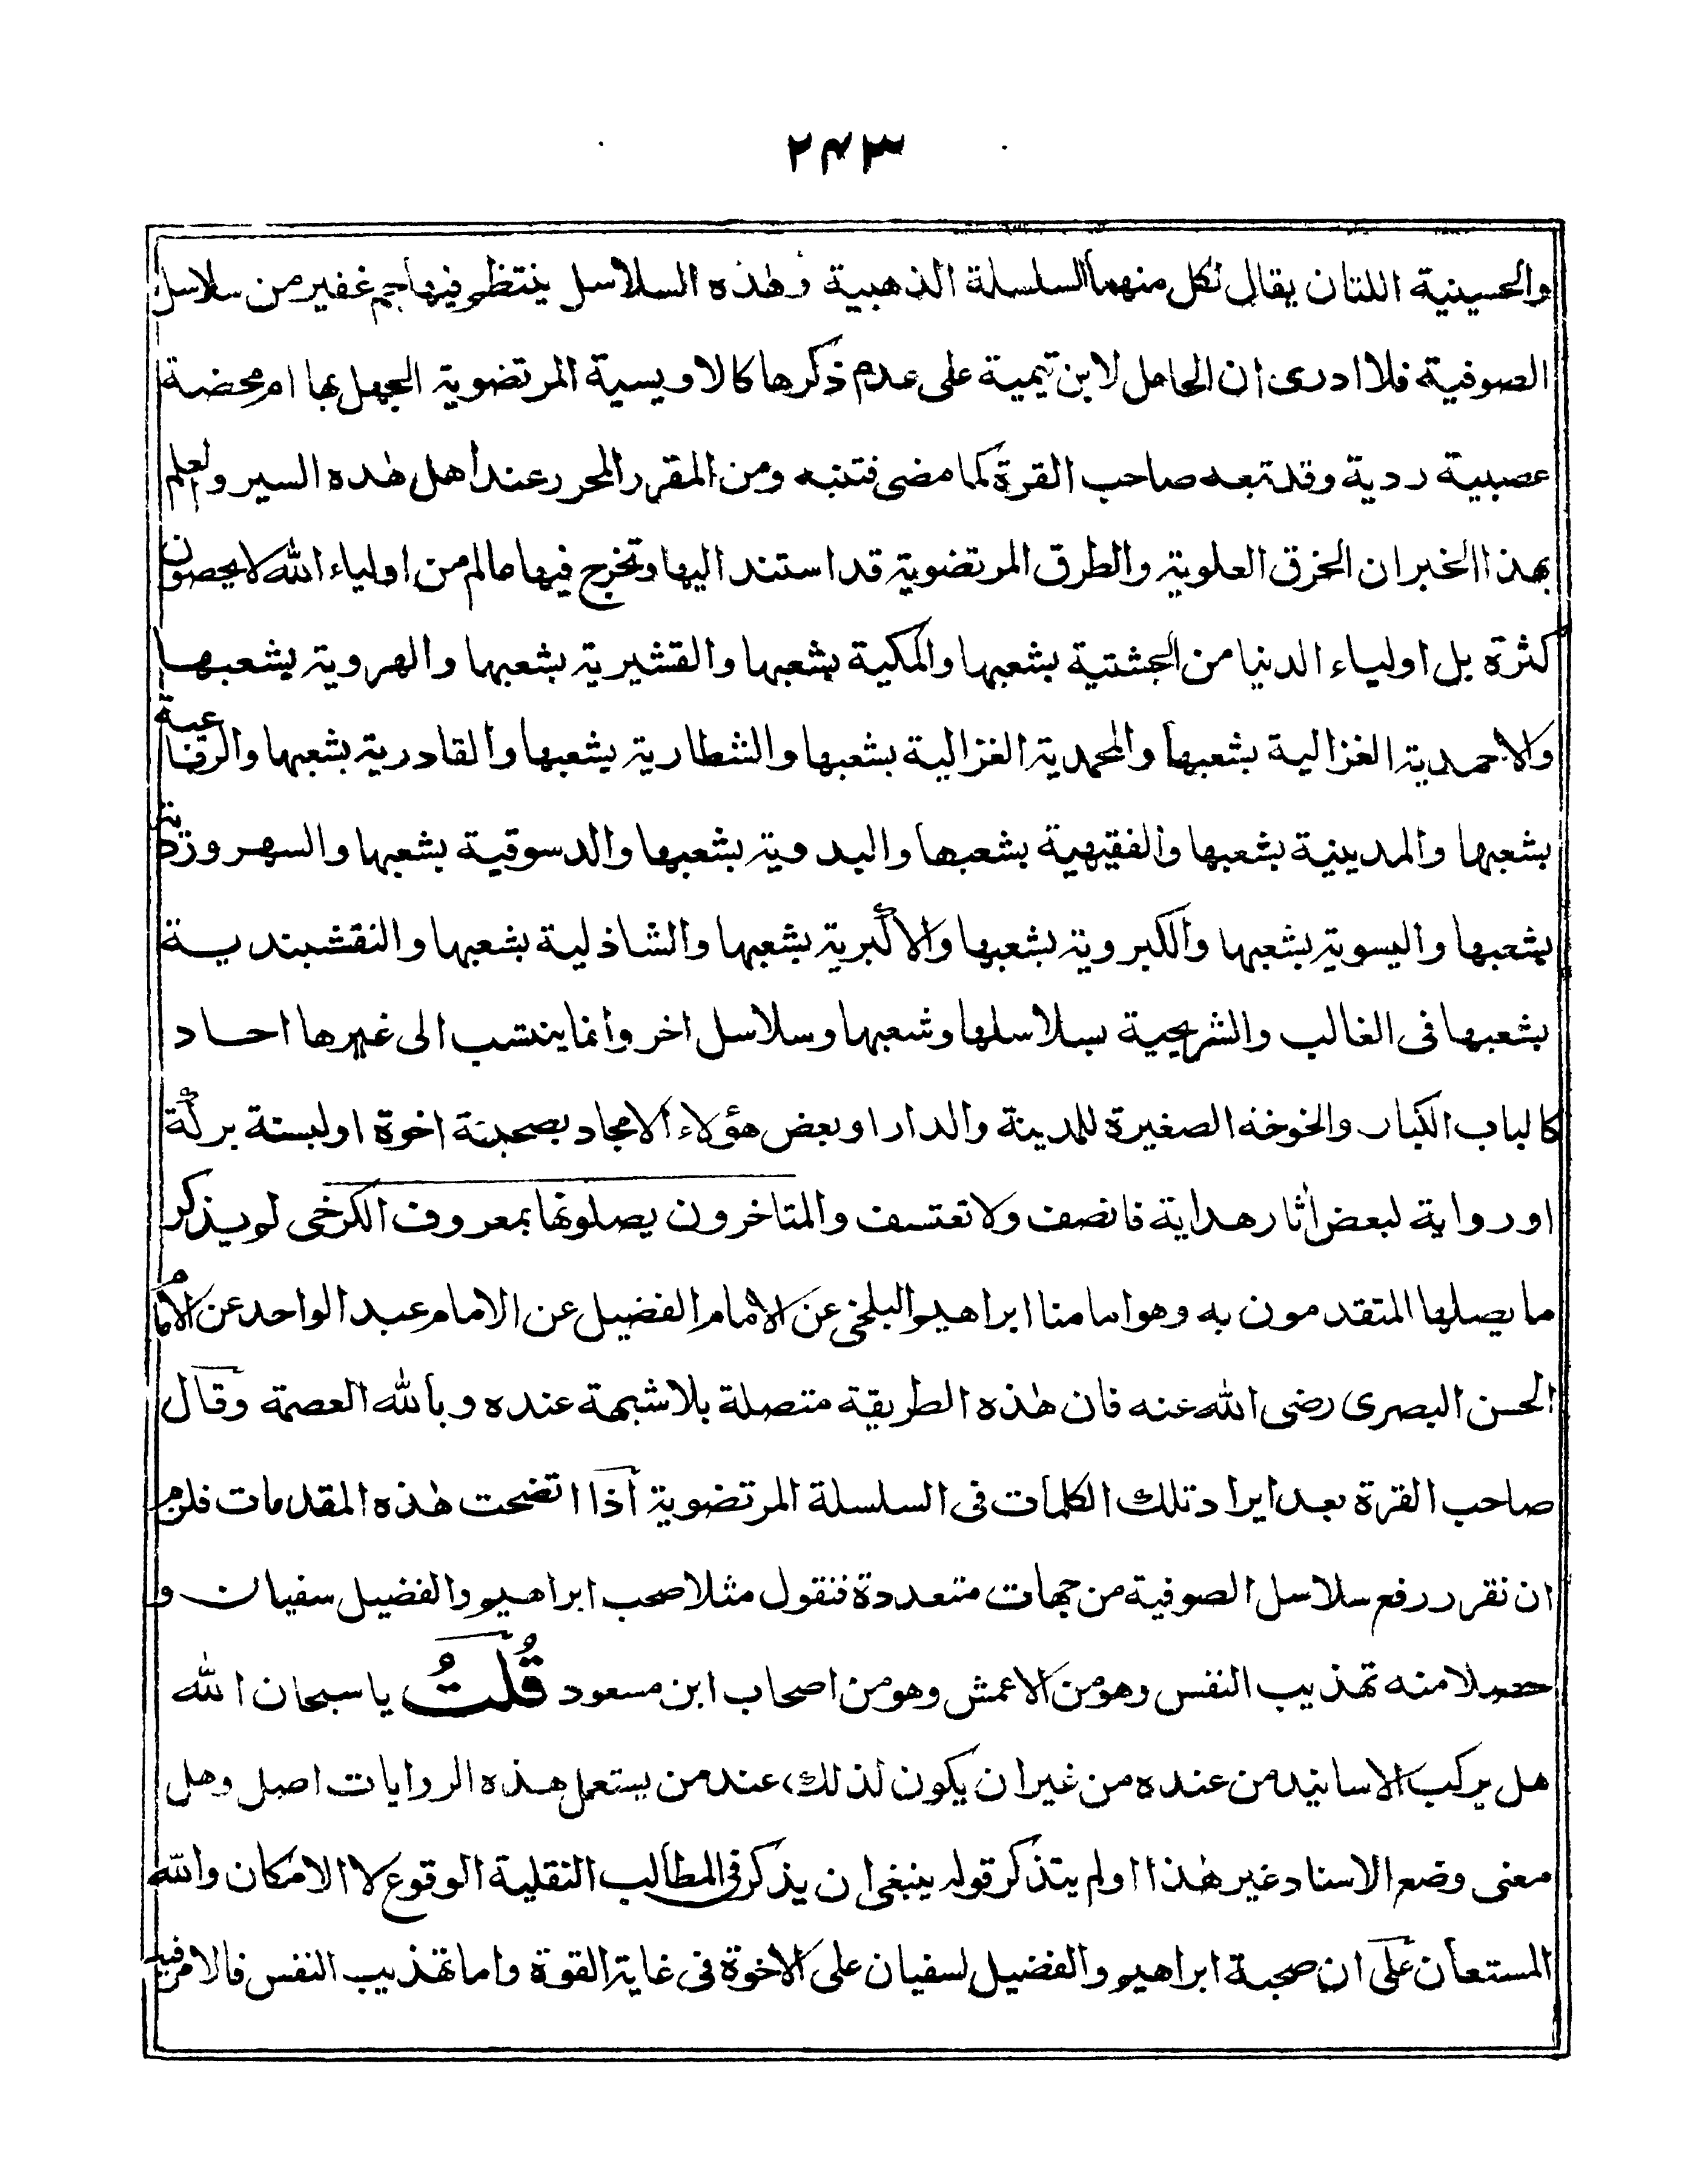 ۲۴۳
والحسينية اللتان يقال لكل منهما السلسلة الذهبية وهٰذه السلاسل ينتظم فيها جم غفير من سلاسل
الصوفية فلا ادرى ان الحامل لابن تيمية على عدم ذكرها كالاويسية المرتضوية الجهل بها ام محضة
عصبية ردية وقد تبعه صاحب القرة كما مضى فتنبه ومن المقرر المحرر عند أهل هٰذه السير والعلم
بهذا الخبر ان الخرق العلوية والطرق المرتضوية قد استند اليها وتخرج فيها مالم من اولياء الله لا يحصون
كثرة بل اولياء الدنيا من الجشتية بشعبها والمكية بشعبها والقشيرية بشعبها والهروية بشعبها
والاحمدية الغزالية بشعبها والمحمدية الغزالية بشعبها والشطارية بشعبها والقادرية بشعبها والرفاعية
بشعبها والمدينية بشعبها والفقيهية بشعبها والبدوية بشعبها والدسوقية بشعبها والسهروردية
بشعبها واليسوية بشعبها والكبروية بشعبها والاكبرية بشعبها والشاذلية بشعبها والنقشبندية
بشعبها فى الغالب والشريحية بسلاسلها وشعبها وسلاسل اخر وانما ينتسب الى غيرها احاد
كالباب الكبار والخوخة الصغيرة للمدينة والدار او بعض هؤلاء الامجاد بصحبة اخوة او لبسة بركة
او رواية لبعض اٰثار هداية فانصف ولا تعتسف والمتاخرون يصلونها بمعروف الكرخى لم يذكر
ما يصلها المتقدمون به وهو امامنا ابراهيم البلخى عن الامام الفضيل عن الامام عبد الواحد عن الامام
الحسن البصرى رضى الله عنه فان هٰذه الطريقة متصلة بلا شبهة عنده وبالله العصمة وقال
صاحب القرة بعد ايراد تلك الكلمات فى السلسلة المرتضوية اذا اتضحت هٰذه المقدمات فلزم
ان نقرر رفع سلاسل الصوفية من جهات متعددة فنقول مثلا صحب ابراهيم والفضيل سفيان و
حصلا منه تهذيب النفس وهو من الاعمش وهو من اصحاب ابن مسعود قُلتُ يا سبحان الله
هل يركب الاسانيد من عنده من غير ان يكون لذلك عند من يستعمل هذه الروايات اصل وهل
معنى وضع الاسناد غير هٰذا اولم يتذكر قوله ينبغى ان يذكر فى المطالب النقلية الوقوع لا الامكان والله
المستعان على ان صحبة ابراهيم والفضيل لسفيان على الاخوة فى غاية القوة واما تهذيب النفس فالامر فيه